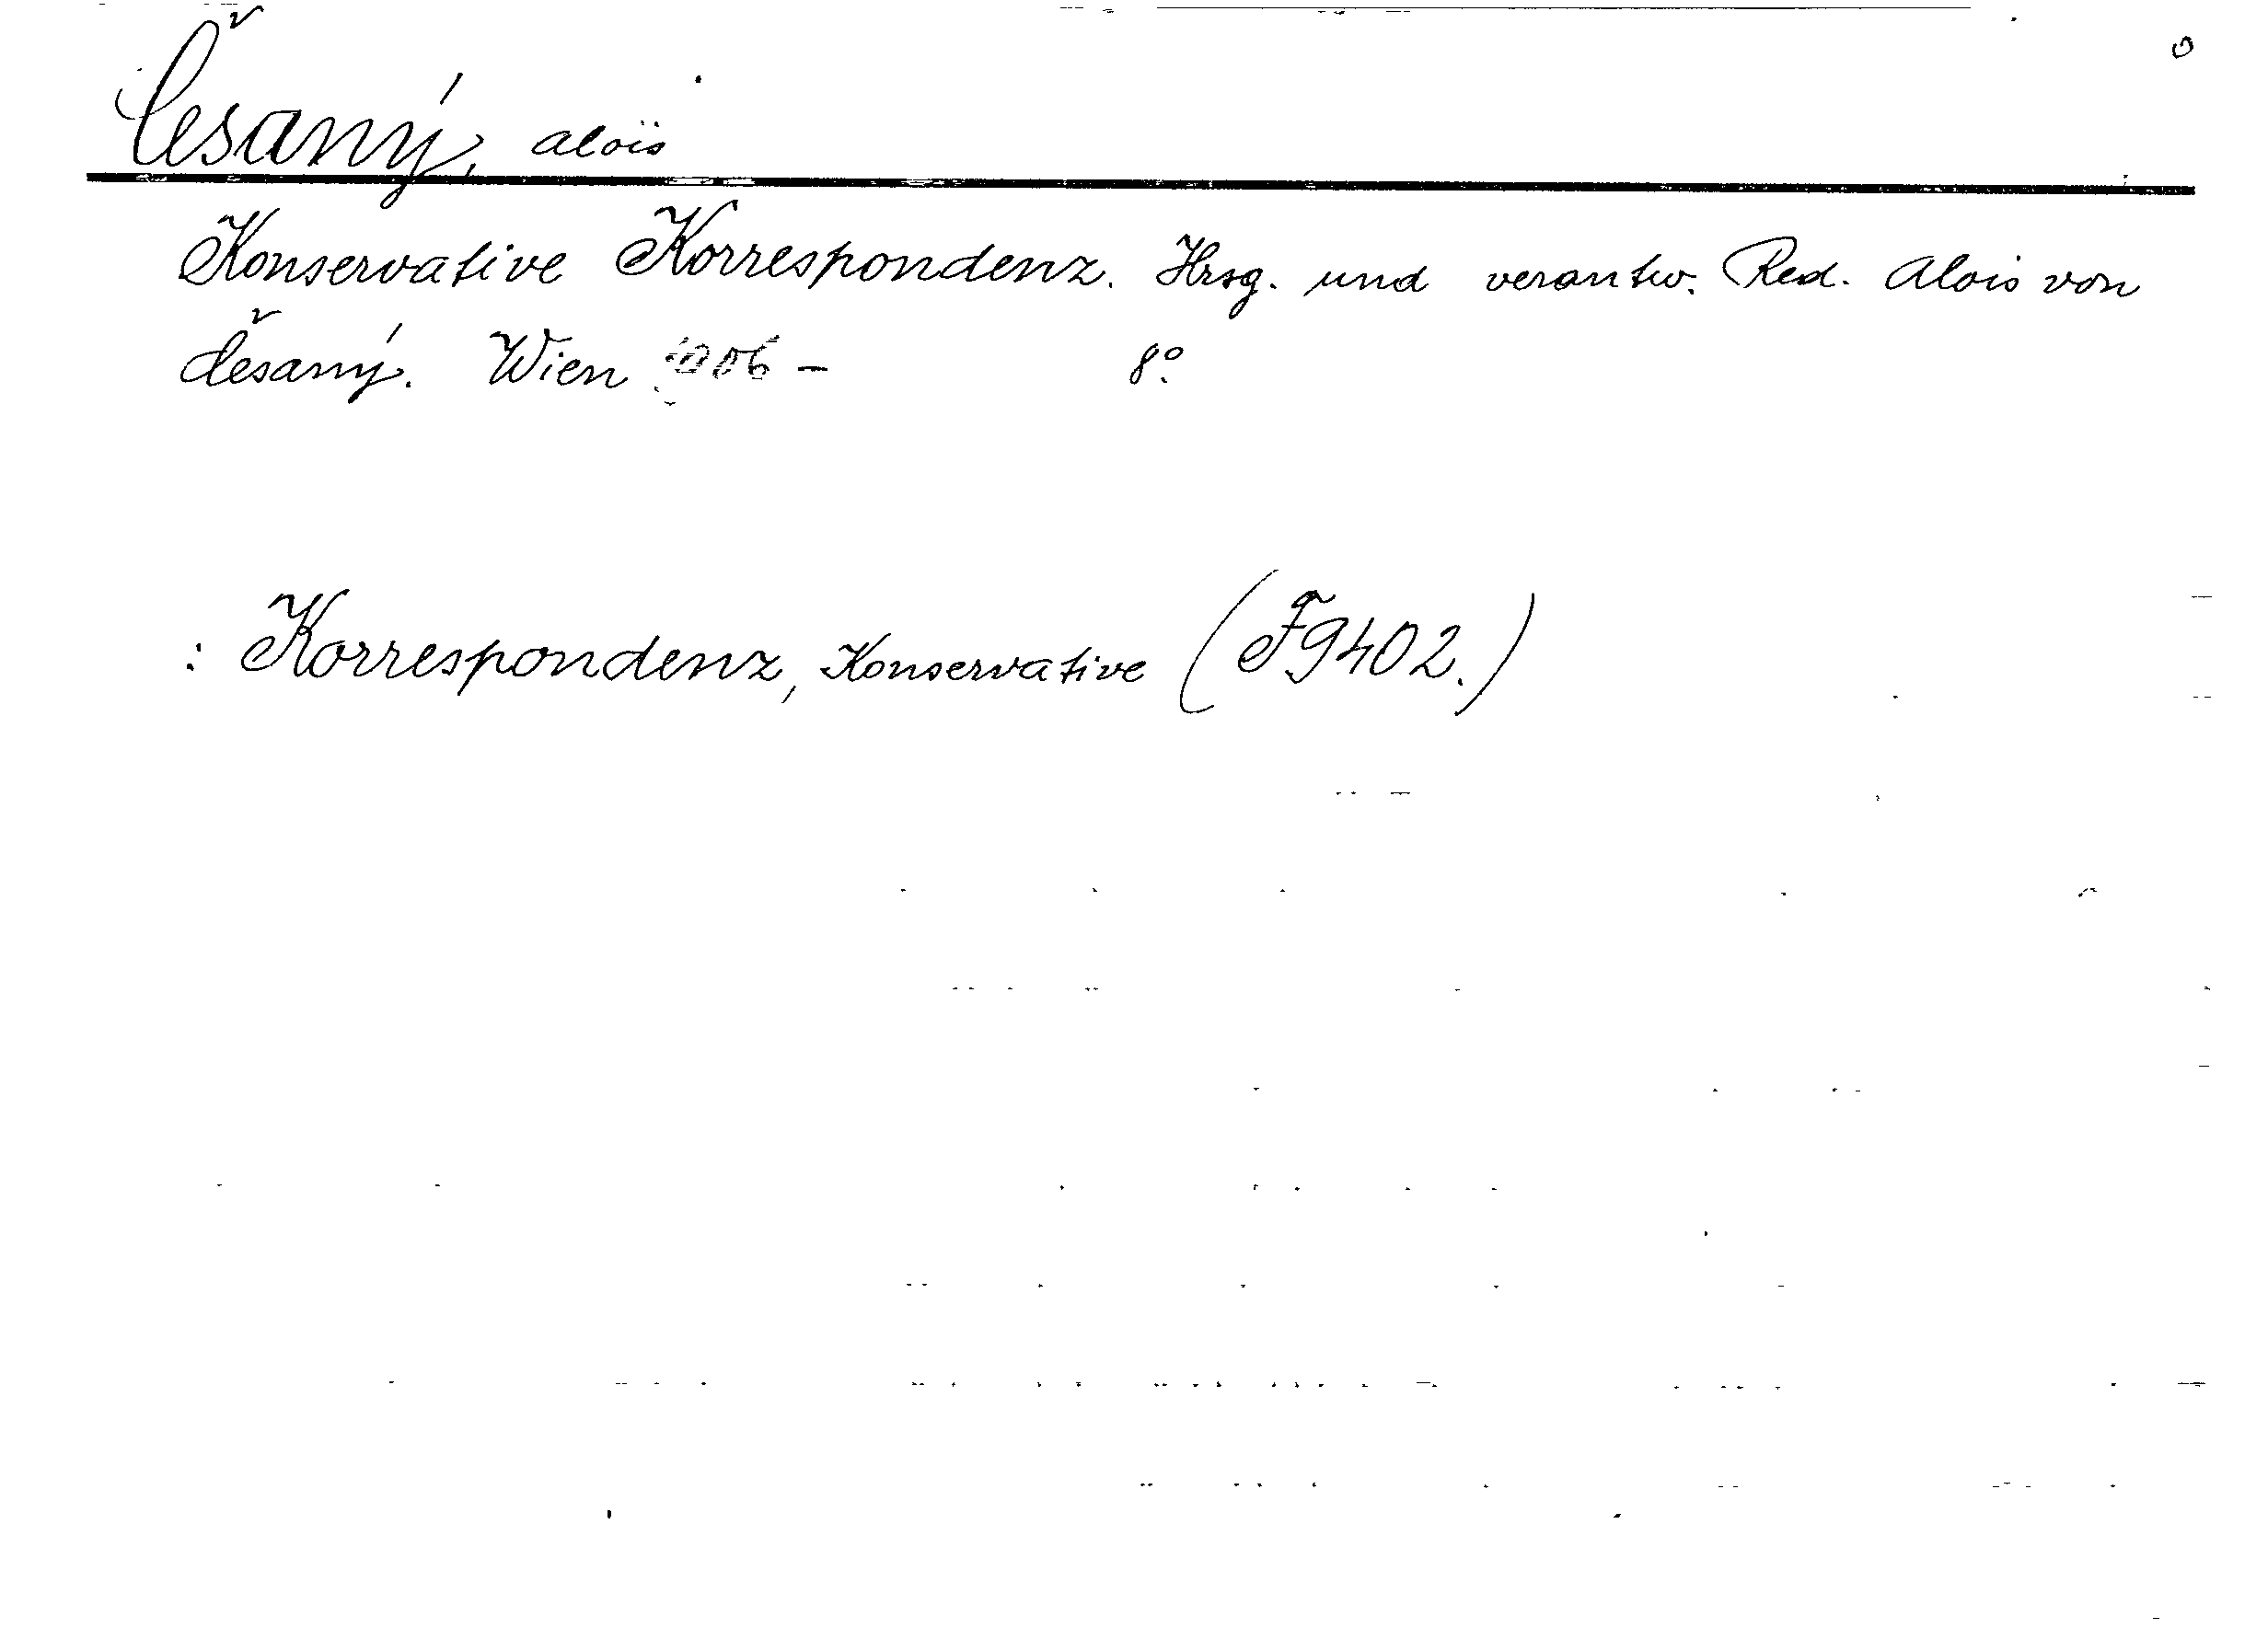 Česaný, Alois
Konservative Korrespondenz. Hrsg. und verantw. Red. Alois von
Česaný. Wien 1906 – 8°.
: Korrespondenz, Konservative (F9402.)